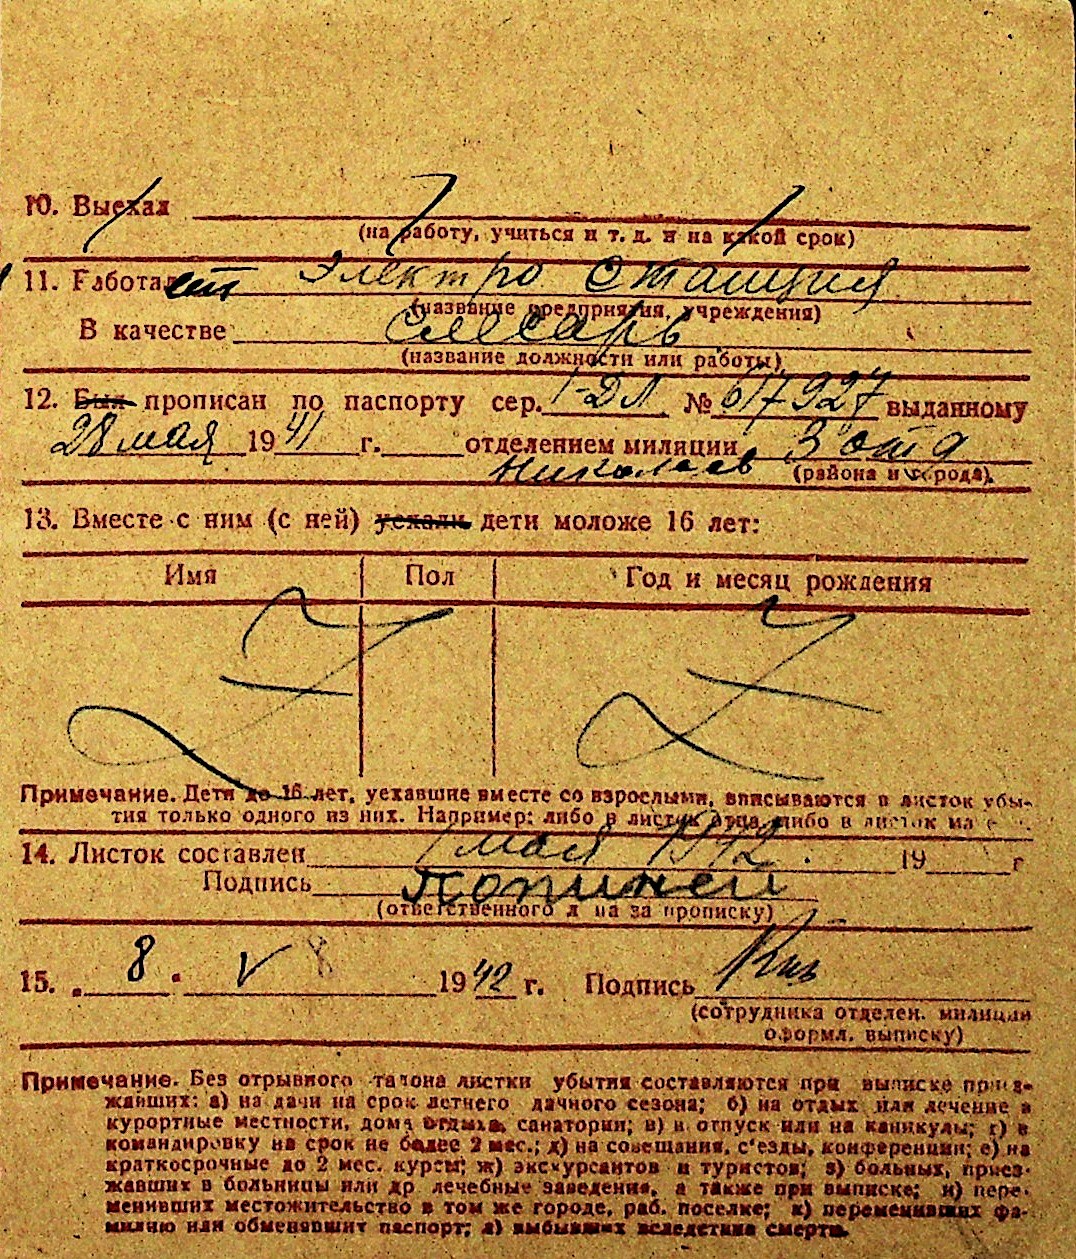 10. Выехал
(на работу, учиться и т. д. и на какой срок)
11. Работает Электро Станция
(название предприятия, учреждения)
В качестве слесарь
(название должности или работы)
12. Был прописан по паспорту сер. I-ДЛ № 617927 выданному
28 мая 1941 г. отделением милиции 3 отд
Николаев (района и города).
13. Вместе с ним (с ней) уехали дети моложе 16 лет:
Имя Пол Год и месяц рождения
Примечание. Дети до 16 лет, уехавшие вместе со взрослыми, вписываются в листок убы-
тия только одного из них. Например: либо в листок отца, либо в листок
14. Листок составлен 1 мая 1942. 19 г
Подпись
(ответственного лица за прописку)
15. „8" V 1942 г. Подпись
(сотрудника отделен. милиции
оформл. выписку)
Примечание. Без отрывного талона листки убытия составляются при выписке приез-
жавших: а) на дачи на срок летнего дачного сезона; б) на отдых или лечение в
курортные местности, дома отдыха, санатории; в) в отпуск или на каникулы; г) в
командировку на срок не более 2 мес.; д) на совещания, с'езды, конференции; е) на
краткосрочные до 2 мес. курсы; ж) экскурсантов и туристов; з) больных, приез-
жавших в больницы или др лечебные заведения, а также при выписке; и) пере-
менивших местожительство в том же городе, раб. поселке; к) переменивших фа-
милию или обменявших паспорт; л) выбывших вследствие смерти.